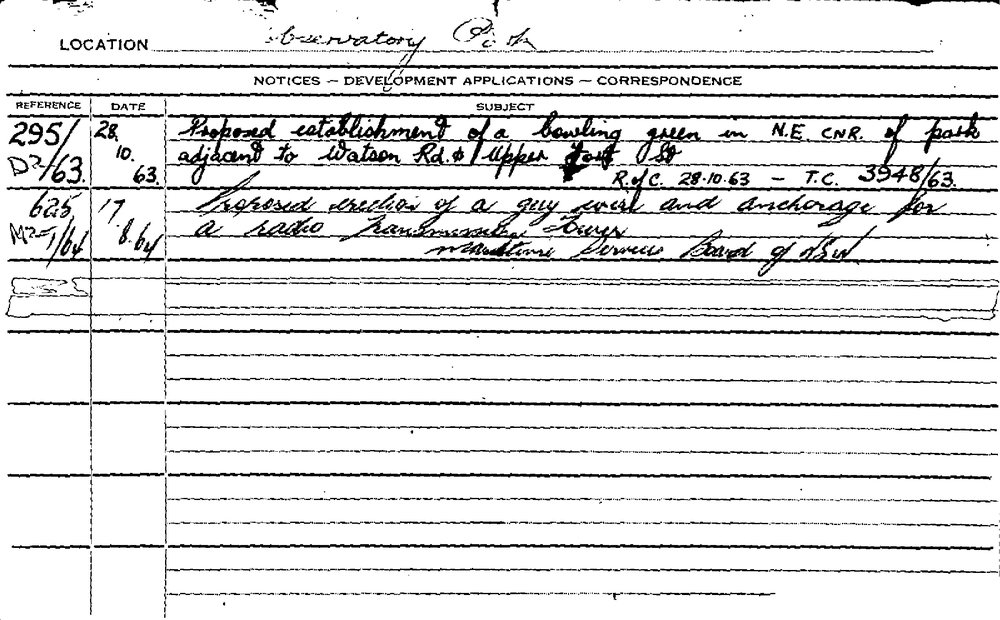 LOCATION Observatory Park
NOTICES – DEVELOPMENT APPLICATIONS – CORRESPONDENCE
REFERENCE DATE SUBJECT
295/ 28. Proposed establishment of a bowling green in N.E. CNR. of park
D2/63. 10. 63. adjacent to Watson Rd. & Upper Fort St
R. of C. 28·10·63 – T.C. 3948/63.
625 17 Proposed erection of a guy wire and anchorage for
M2 1/64 8.64 a radio transmission tower
Maritime Services Board of NSW